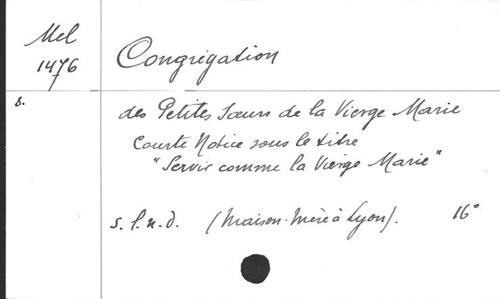 Mel
1476
8.
Congrégation
des Petites Sœurs de la Vierge Marie
Courte Notice sous le titre
"Servir comme la Vierge Marie"
s. l. n. d. (Maison-Mère à Lyon). 16°